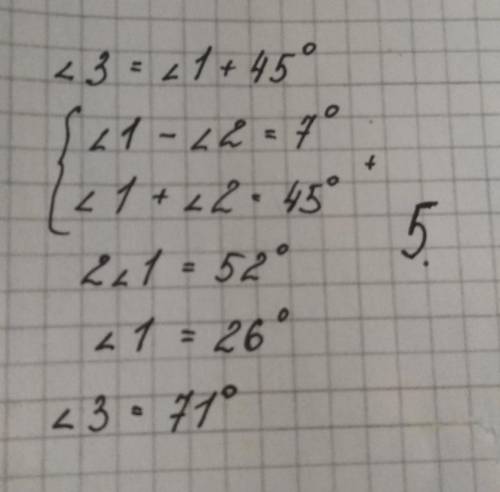 ∠3 = ∠1 + 45°
{ ∠1 - ∠2 = 7°
∠1 + ∠2 = 45° +
5.
2∠1 = 52°
∠1 = 26°
∠3 = 71°